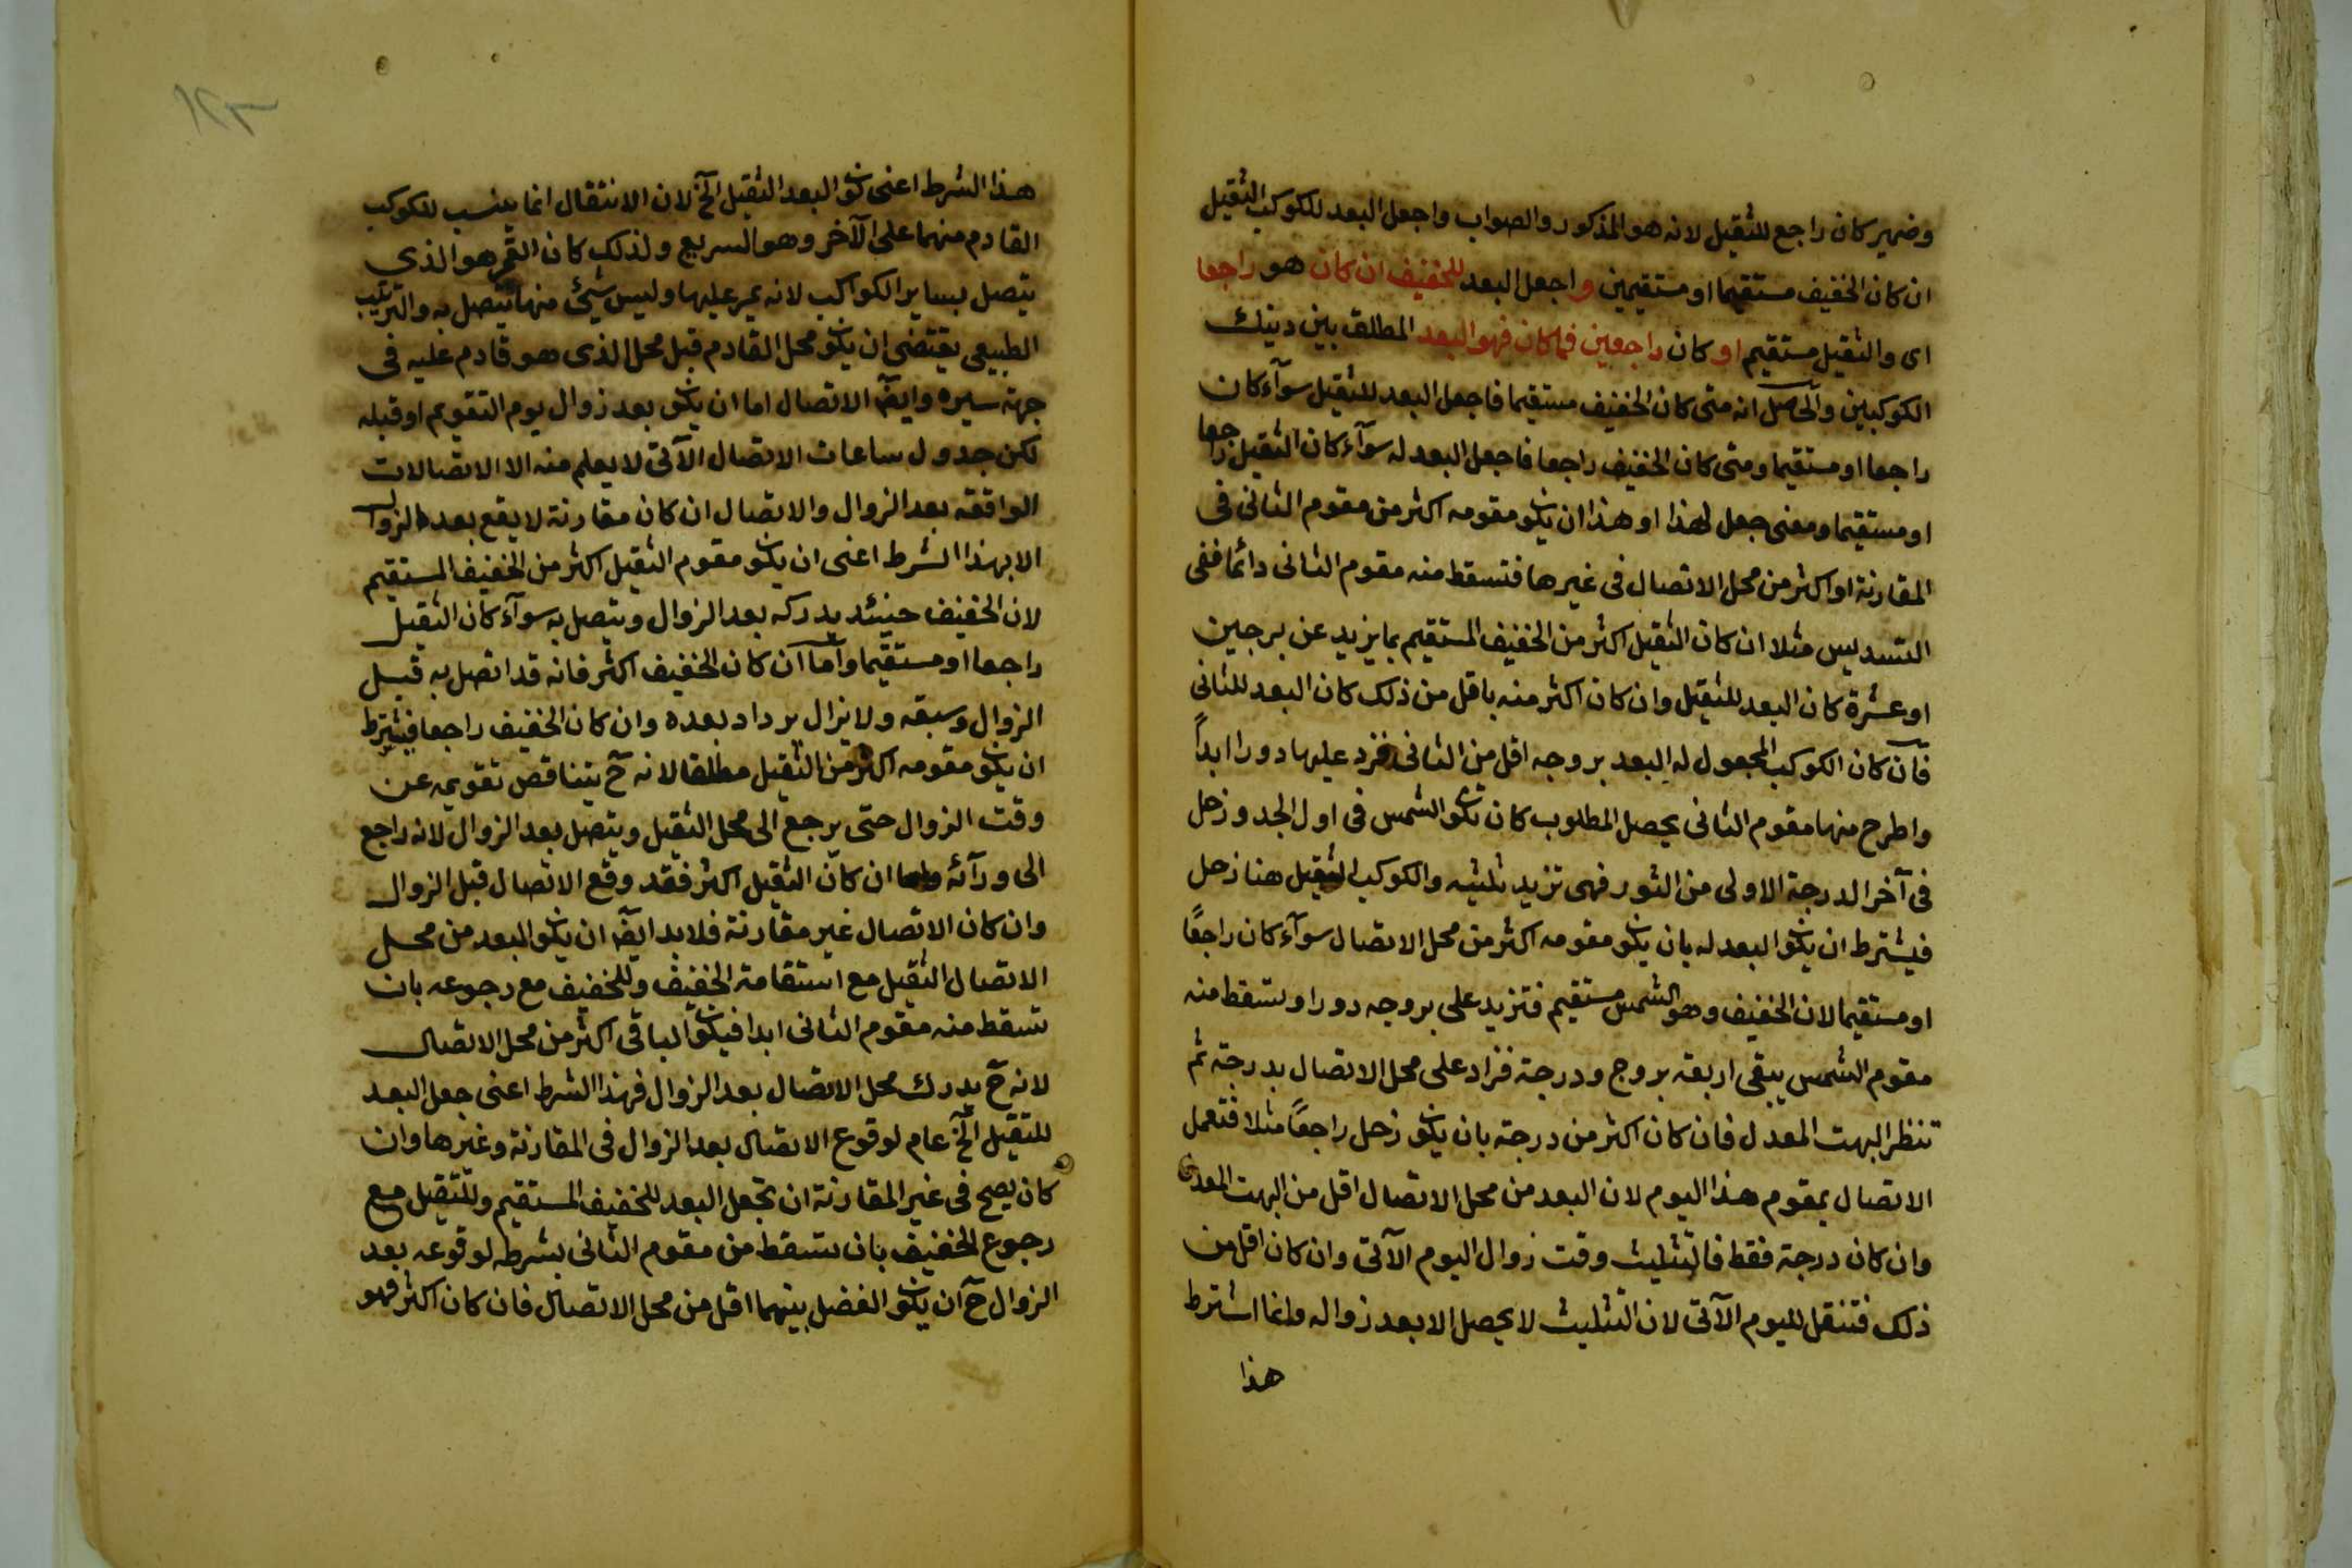 وضمير كان راجع للثقيل لانه هو المذكور والصواب واجعل البعد للكوكب الثقيل
ان كان الخفيف مستقيما او مستقيمين واجعل البعد للخفيف ان كان هو راجعا
اى والثقيل مستقيم او كان راجعين فما كان فهو البعد المطلق بين دينك
الكوكبين والحاصل انه متى كان الخفيف مستقيما فاجعل البعد للثقيل سوآء كان
راجعا او مستقيما ومتى كان الخفيف راجعا فاجعل البعد له سوآء كان الثقيل راجعا
او مستقيما ومعنى جعل لهذا او هذا ان يكو مقومه اكثر من مقوم الثانى فى
المقارنة او اكثر من محل الاتصال فى غيرها فتسقط منه مقوم الثانى دائما ففى
التسديس مثلا ان كان الثقيل اكثر من الخفيف المستقيم بما يزيد عن برجين
او عشرة كان البعد للثقيل وان كان اكثر منه باقل من ذلك كان البعد للثانى
فان كان الكوكب المجعول له البعد بروجه اقل من الثانى فزد عليها دورا ابداً
واطرح منها مقوم الثانى يحصل المطلوب كان تكو الشمس فى اول الجد وزحل
فى آخر الدرجة الاولى من الثور فهى تزيد تثليثه والكوكب الثقيل هنا زحل
فيشترط ان يكو البعد له بان يكو مقومه اكثر من محل الاتصال سوآء كان راجعًا
او مستقيما لان الخفيف وهو الشمس مستقيم فتزيد على بروجه دورا وتسقط منه
مقوم الشمس يبقى اربعة بروج ودرجة فزاد على محل الاتصال بدرجة ثم
تنظر البهت المعدل فان كان اكثر من درجة بان يكو زحل راجعًا مثلا فتعمل
الاتصال بمقوم هذا اليوم لان البعد من محل الاتصال اقل من البهت المعدل
وان كان درجة فقط فالتثليث وقت زوال اليوم الآتى وان كان اقل من
ذلك فتنقل لليوم الآتى لان التثليث لا يحصل الا بعد زواله وانما اشترط
هذا
١٢٣
هذا الشرط اعنى كو البعد الثقيل الخ لان الانتقال انما ينسب للكوكب
القادم منهما على الآخر وهو السريع ولذلك كان القمر هو الذى
يتصل بساير الكواكب لانه يمر عليها وليس شيئ منها يتصل به والترتيب
الطبيعى يقتضى ان يكو محل القادم قبل محل الذى هو قادم عليه فى
جهة سيره وايضا الاتصال اما ان يكو بعد زوال يوم التقويم او قبله
لكن جدول ساعات الاتصال الآتى لا يعلم منه الا الاتصالات
الواقعة بعد الزوال والاتصال ان كان مقارنة لا يقع بعد الزوال
الا بهذا الشرط اعنى ان يكو مقوم الثقيل اكثر من الخفيف المستقيم
لان الخفيف حينئد يدركه بعد الزوال ويتصل به سوآء كان الثقيل
راجعا او مستقيما واما ان كان الخفيف اكثر فانه قد اتصل به قبل
الزوال وسبقه ولا يزال يرداد بعده وان كان الخفيف راجعا فيشترط
ان يكو مقومه اكثر من الثقيل مطلقا لانه ح يتناقص تقويمه عن
وقت الزوال حتى يرجع الى محل الثقيل ويتصل بعد الزوال لانه راجع
الى ورآئه واما ان كان الثقيل اكثر فقد وقع الاتصال قبل الزوال
وان كان الاتصال غير مقارنة فلا بد ايضا ان يكو البعد من محل
الاتصال الثقيل مع استقامة الخفيف وللخفيف مع رجوعه بان
تسقط منه مقوم الثانى ابدا فيكو الباقى اكثر من محل الاتصال
لانه ح يدرك محل الاتصال بعد الزوال فهذا الشرط اعنى جعل البعد
للثقيل الخ عام لوقوع الاتصال بعد الزوال فى المقارنة وغيرها وان
كان يصح فى غير المقارنة ان تجعل البعد للخفيف المستقيم وللثقيل مع
رجوع الخفيف بان تسقط من مقوم الثانى بشرطه لوقوعه بعد
الزوال ح ان يكو الفضل بينهما اقل من محل الاتصال فان كان اكثر فهو